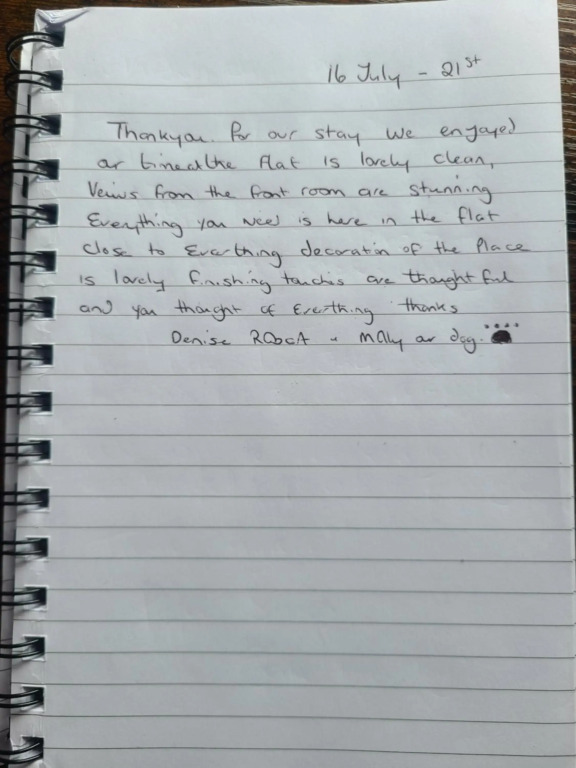 16 July - 21st
Thankyou for our stay we enyoyed
ar time the flat is lovely clean,
Veiws from the front room are stunning
Everything you need is here in the flat
close to Everthing decoration of the place
is lovely finishing touchis are thoughtful
and you thought of Everthing thanks
Denise + Molly ar dog.